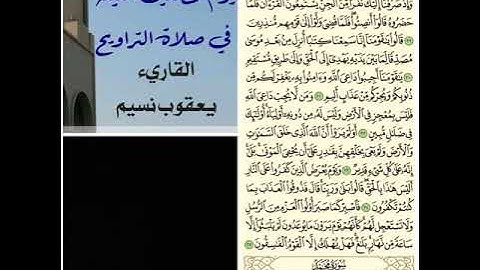 في صلاة التراويح
القاريء
يعقوب نسيم
وَإِذْ صَرَفْنَا إِلَيْكَ نَفَرًا مِّنَ الْجِنِّ يَسْتَمِعُونَ الْقُرْءَانَ فَلَمَّا
حَضَرُوهُ قَالُوا أَنصِتُوا فَلَمَّا قُضِيَ وَلَّوْا إِلَى قَوْمِهِم مُّنذِرِينَ
٢٩ قَالُوا يَٰقَوْمَنَا إِنَّا سَمِعْنَا كِتَٰبًا أُنزِلَ مِنْ بَعْدِ مُوسَى
مُصَدِّقًا لِّمَا بَيْنَ يَدَيْهِ يَهْدِي إِلَى الْحَقِّ وَإِلَى طَرِيقٍ مُّسْتَقِيمٍ
٣٠ يَٰقَوْمَنَا أَجِيبُوا دَاعِيَ اللَّهِ وَءَامِنُوا بِهِ يَغْفِرْ لَكُم مِّن
ذُنُوبِكُمْ وَيُجِرْكُم مِّنْ عَذَابٍ أَلِيمٍ ٣١ وَمَن لَّا يُجِبْ دَاعِيَ اللَّهِ
فَلَيْسَ بِمُعْجِزٍ فِي الْأَرْضِ وَلَيْسَ لَهُ مِن دُونِهِ أَوْلِيَاءُ أُولَٰئِكَ
فِي ضَلَٰلٍ مُّبِينٍ ٣٢ أَوَلَمْ يَرَوْا أَنَّ اللَّهَ الَّذِي خَلَقَ السَّمَٰوَٰتِ
وَالْأَرْضَ وَلَمْ يَعْيَ بِخَلْقِهِنَّ بِقَٰدِرٍ عَلَى أَن يُحْيِيَ الْمَوْتَى بَلَى إِنَّهُ
عَلَى كُلِّ شَيْءٍ قَدِيرٌ ٣٣ وَيَوْمَ يُعْرَضُ الَّذِينَ كَفَرُوا عَلَى النَّارِ
أَلَيْسَ هَٰذَا بِالْحَقِّ قَالُوا بَلَى وَرَبِّنَا قَالَ فَذُوقُوا الْعَذَابَ بِمَا
كُنتُمْ تَكْفُرُونَ ٣٤ فَاصْبِرْ كَمَا صَبَرَ أُولُوا الْعَزْمِ مِنَ الرُّسُلِ
وَلَا تَسْتَعْجِل لَّهُمْ كَأَنَّهُمْ يَوْمَ يَرَوْنَ مَا يُوعَدُونَ لَمْ يَلْبَثُوا إِلَّا
سَاعَةً مِّن نَّهَارٍ بَلَٰغٌ فَهَلْ يُهْلَكُ إِلَّا الْقَوْمُ الْفَٰسِقُونَ ٣٥
سُورَةُ مُحَمَّدٍ